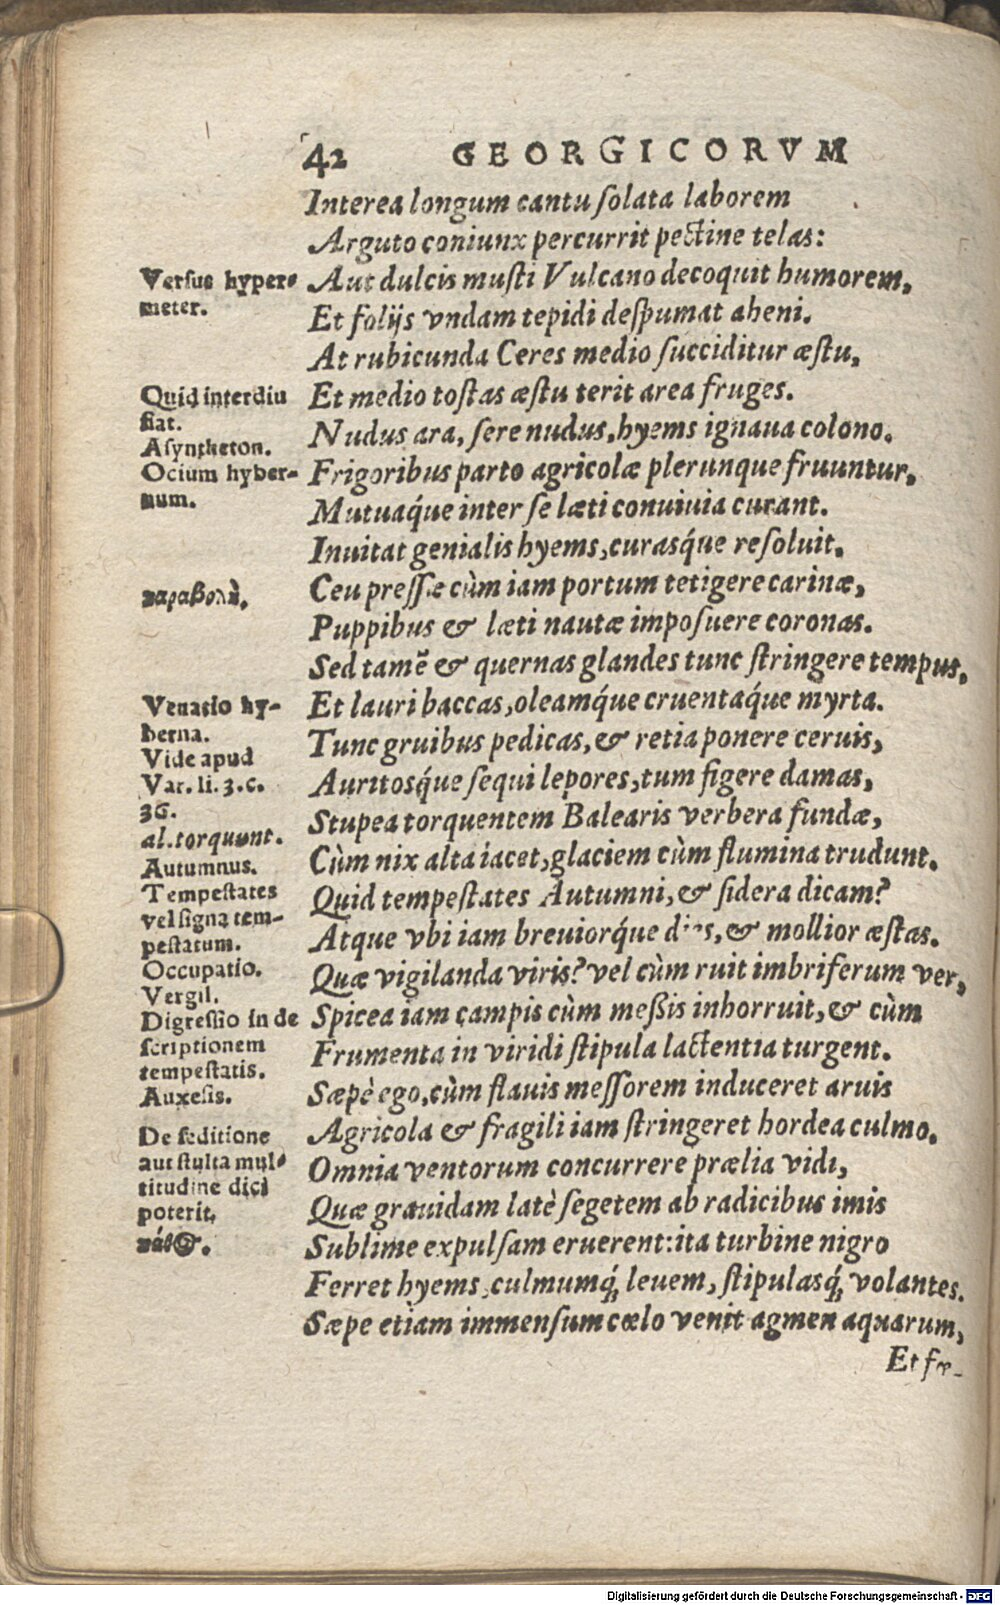 42 GEORGICORVM
Interea longum cantu ſolata laborem
Arguto coniunx percurrit pectine telas:
Versus hyper-
meter.
Aut dulcis muſti Vulcano decoquit humorem,
Et folijs vndam tepidi deſpumat aheni.
At rubicunda Ceres medio ſucciditur æſtu,
Quid interdiu
fiat.
Et medio toſtas æſtu terit area fruges.
Aſyntheton.
Nudus ara, ſere nudus, hyems ignaua colono.
Ocium hyber-
num.
Frigoribus parto agricolæ plerunque fruuntur,
Mutuaq́ue inter ſe læti conuiuia curant.
Inuitat genialis hyems, curasq́ue reſoluit.
παραβολὴ.
Ceu preſſæ cùm iam portum tetigere carinæ,
Puppibus & læti nautæ impoſuere coronas.
Sed tamẽ & quernas glandes tunc ſtringere tempus,
Venatio hy-
berna.
Et lauri baccas, oleamq́ue cruentaq́ue myrta.
Tunc gruibus pedicas, & retia ponere ceruis,
Vide apud
Var. li. 3. c.
36.
Auritosq́ue ſequi lepores, tum figere damas,
al. torquunt.
Stupea torquentem Balearis verbera fundæ,
Cùm nix alta iacet, glaciem cùm flumina trudunt.
Autumnus.
Tempeſtates
vel ſigna tem-
peſtatum.
Quid tempeſtates Autumni, & ſidera dicam?
Atque vbi iam breuiorq́ue dies, & mollior æſtas.
Occupatio.
Vergil.
Quæ vigilanda viris? vel cùm ruit imbriferum ver,
Digreſſio in de
ſcriptionem
tempeſtatis.
Spicea iam campis cùm meßis inhorruit, & cùm
Frumenta in viridi ſtipula lactentia turgent.
Auxeſis.
Sæpè ego, cùm flauis meſſorem induceret aruis
De ſeditione
aut ſtulta mul-
titudine dici
poterit.
Agricola & fragili iam ſtringeret hordea culmo,
Omnia ventorum concurrere prælia vidi,
Quæ grauidam latè ſegetem ab radicibus imis
Sublime expulſam eruerent: ita turbine nigro
Ferret hyems, culmumq́; leuem, ſtipulasq́; volantes.
Sæpe etiam immenſum cœlo venit agmen aquarum,
Et fœ-
Digitalisierung gefördert durch die Deutsche Forschungsgemeinschaft - DFG